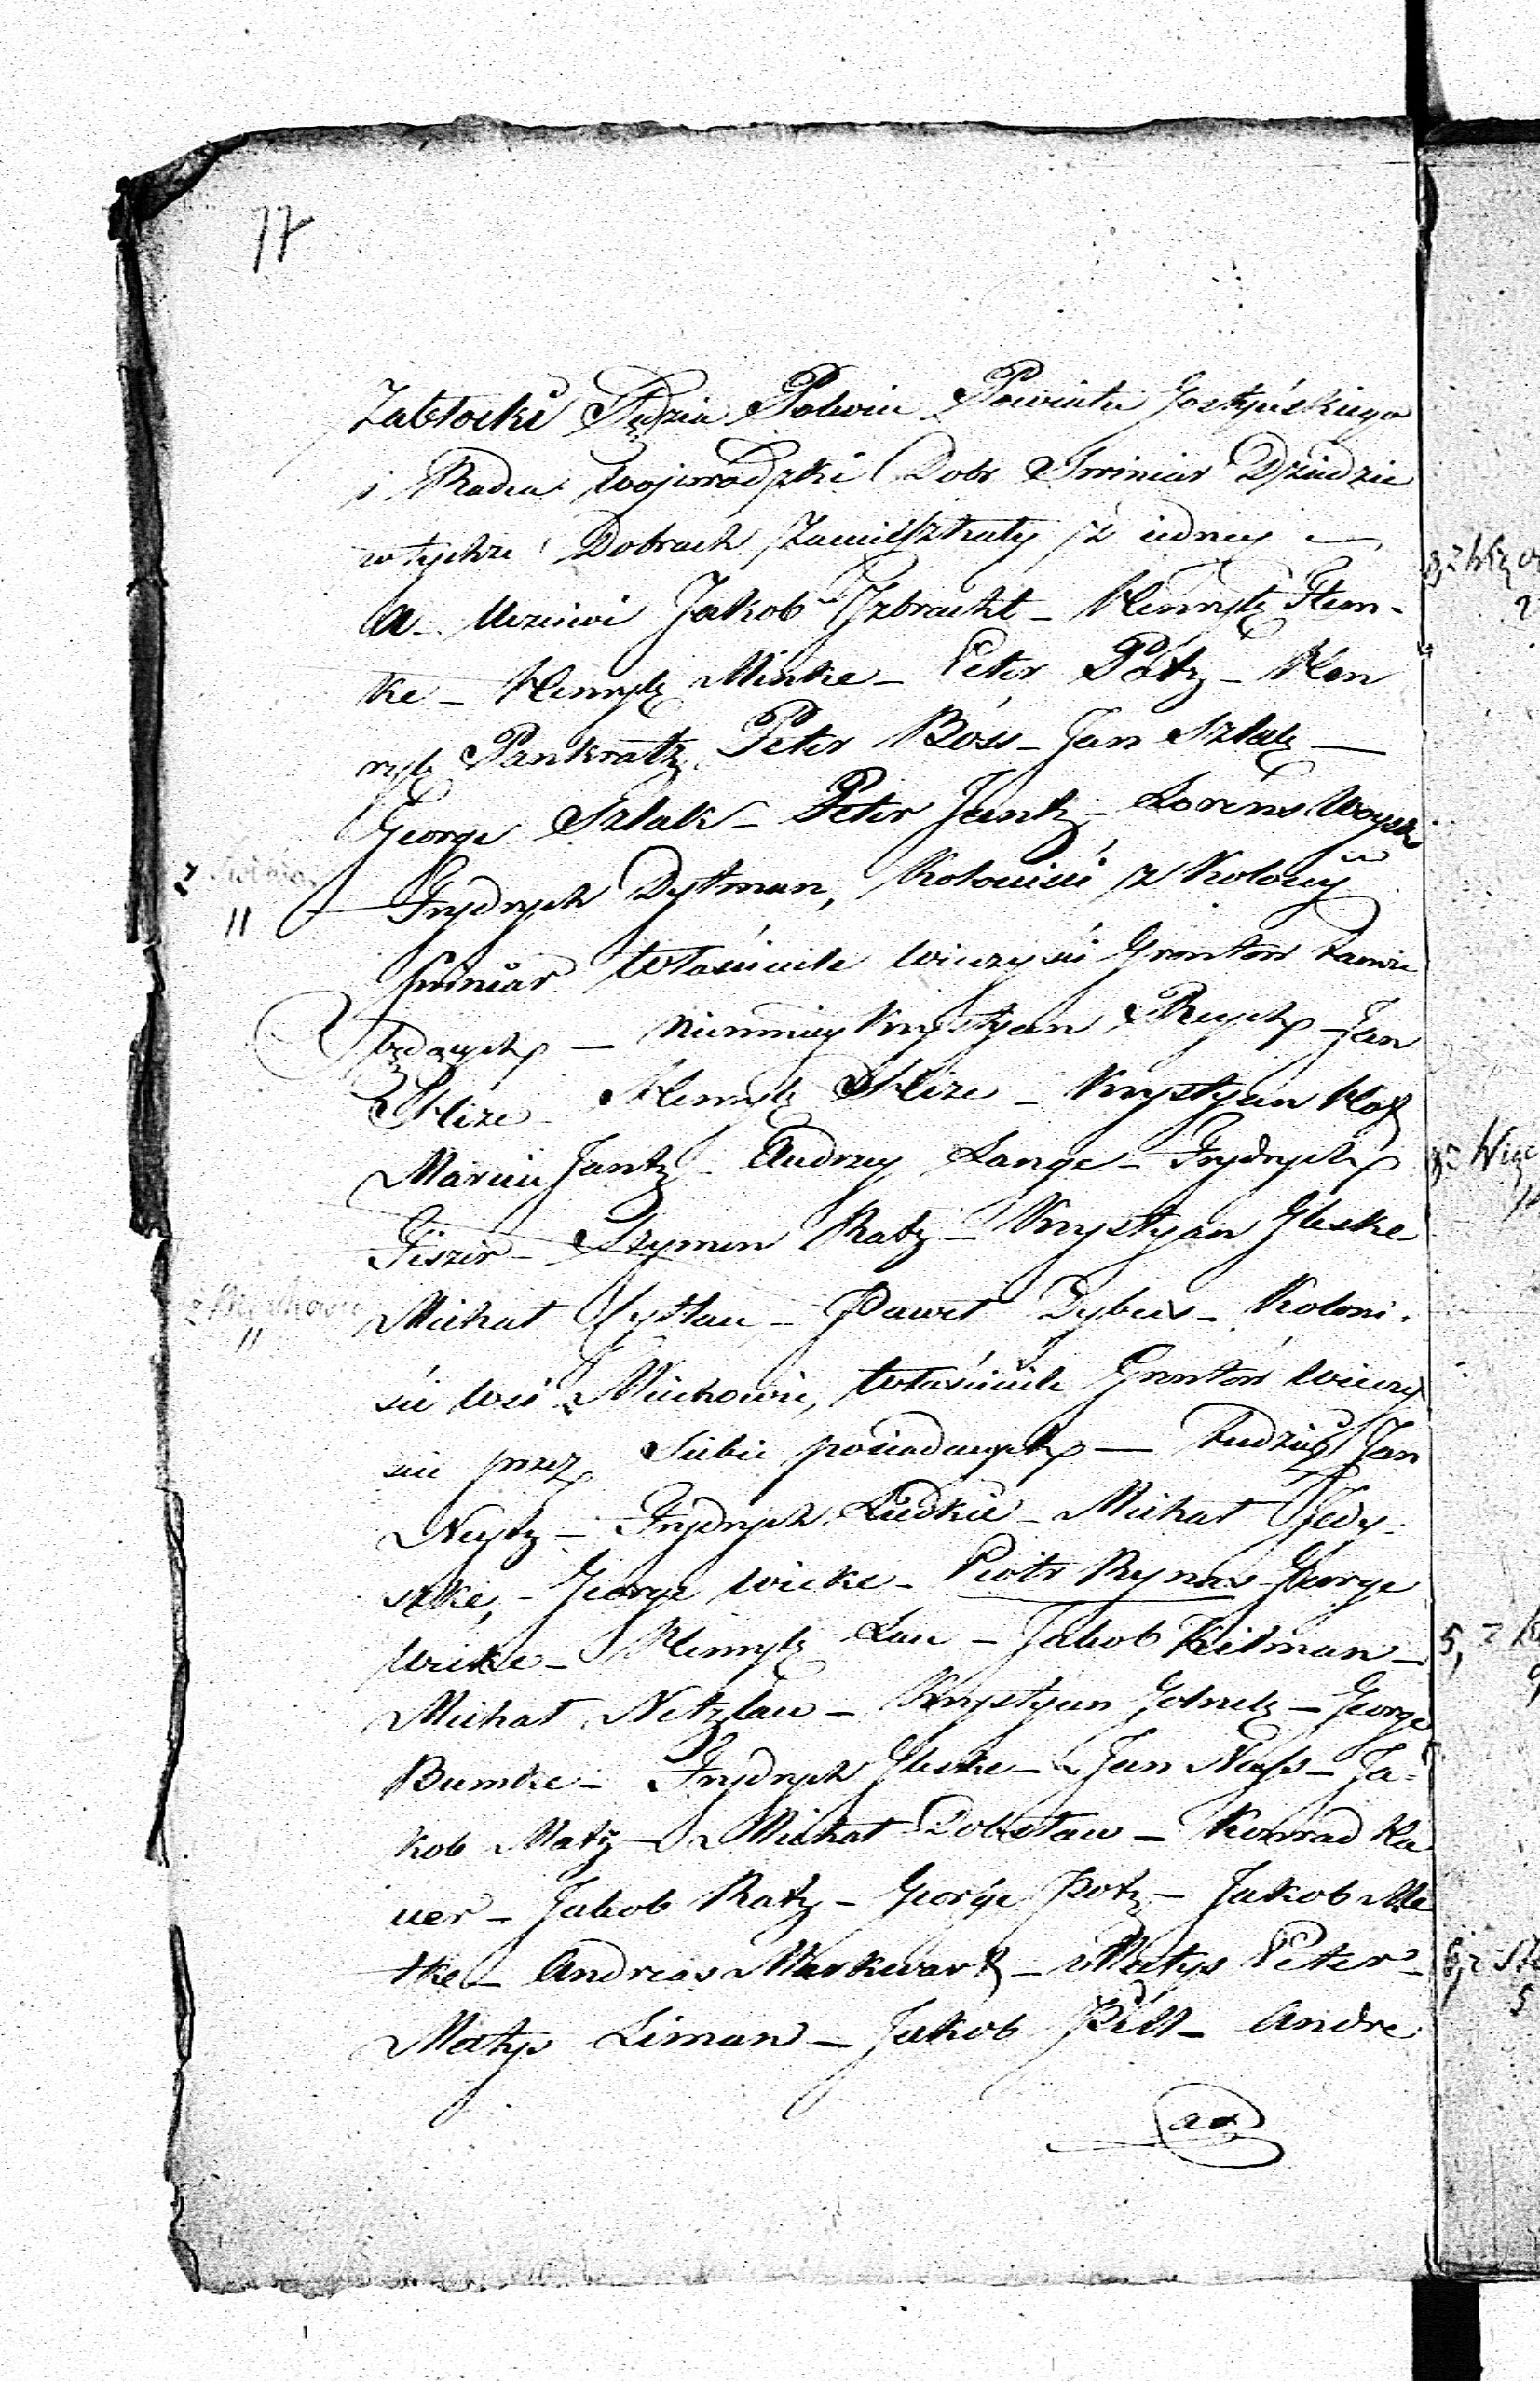 77
Zabłocki Sędzia Pokoiu Powiatu Gostyńskiego
i Radca Wojewodzki Dobr Swiniar Dziedzic
w tychże Dobrach zamieszkały z iedney —
a Uczciwi Jakob Izbracht — Henryk Flem-
ke — Henryk Minke — Peter Pótz — Hen
ryk Pankratz Peter Boss — Jan Szlak —
George Szlak — Peter Jantz — Lorens
z Swiniar
11
Frydrych Dytman, Kolonisci z Kolonii
Swiniar Właściciele wieczyści Grontów tamże
będących — niemniey Krystyan Reych — Jan
Hize — Henryk Hize — Krystyan
Marcin Jantz — Andrzey Lange — Frydrych
Fiszer — Szymon Ratz — Krystyan Gleske
Michał — Paweł Dybus — Koloni-
11
ści Wsi Wiechowie, Właściciele Grontów wieczy
ście przez Siebie posiadanych — tudzież Jan
Neytz — Frydrych Lüdkie — Michał Jedy-
szke, — George Wicke — Piotr Rynas George
Wicke — Henryk Lau — Jakob Kitman —
Michał Netzlau — Krystyan Golnik — George
Bumke — Frydrych Gleske — Jan Nass — Ja-
kob Matz — Michał Dobslau — Konrad Ka
uer — Jakob Ratz — George Potz — Jakob Me
tke — Andreas Markwart — Matys Peter —
Matys Liman — Jakob — Andre
as